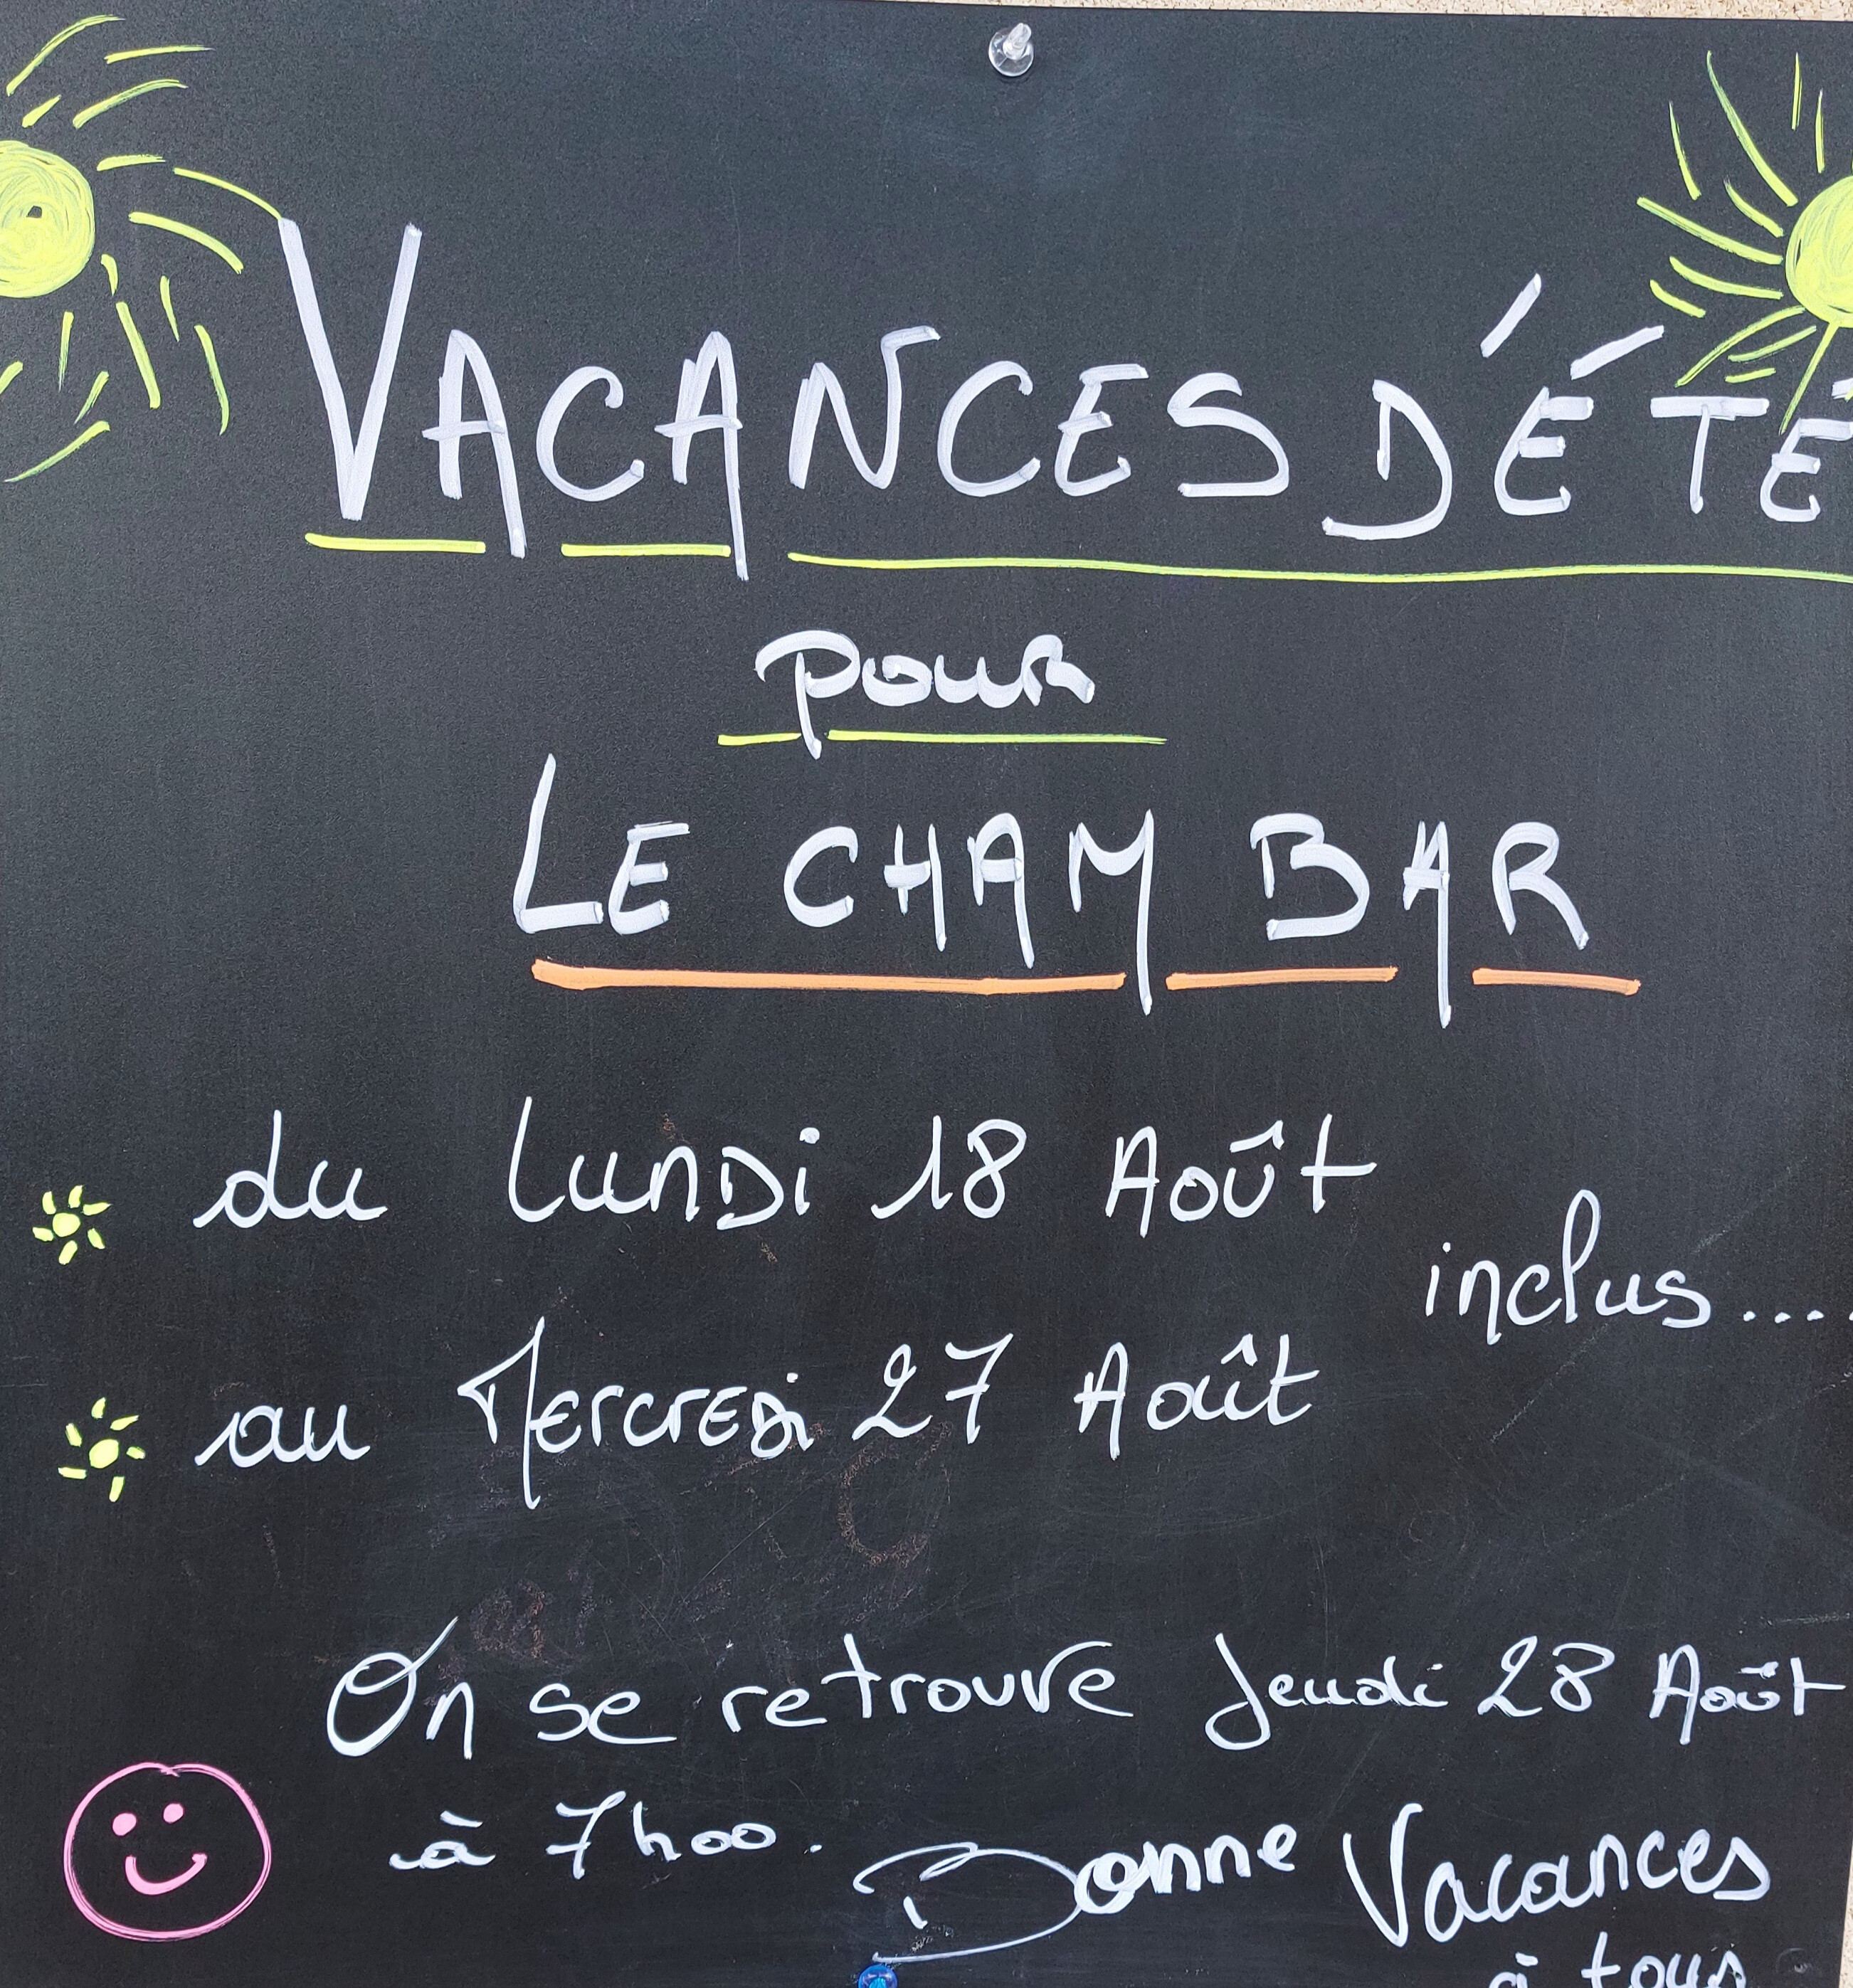 VACANCES D'ÉTÉ
pour
LE CHAM BAR
du Lundi 18 Août
inclus....
au Mercredi 27 Août
On se retrouve Jeudi 28 Août
à 7h00. Bonne Vacances
à tous